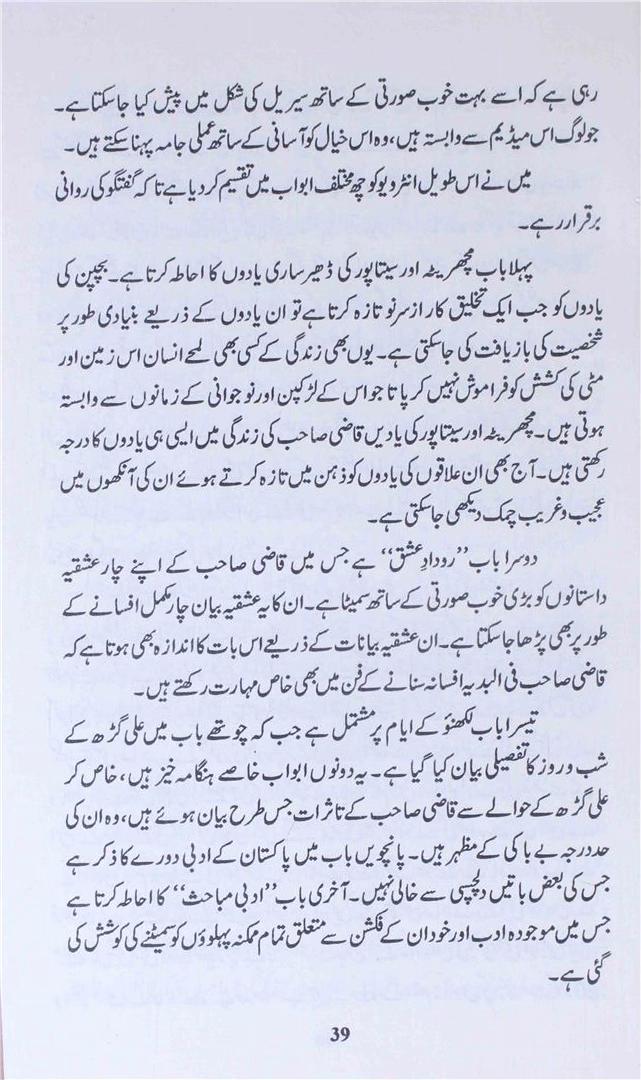 رہی ہے کہ اسے بہت خوب صورتی کے ساتھ سیریل کی شکل میں پیش کیا جاسکتا ہے۔
جو لوگ اس میڈیم سے وابستہ ہیں، وہ اس خیال کو آسانی کے ساتھ عملی جامہ پہنا سکتے ہیں۔
میں نے اس طویل انٹرویو کو چھ مختلف ابواب میں تقسیم کردیا ہے تاکہ گفتگو کی روانی
برقرار رہے۔
پہلا باب مچھریٹہ اور سیتاپور کی ڈھیر ساری یادوں کا احاطہ کرتا ہے۔ بچپن کی
یادوں کو جب ایک تخلیق کار از سر نو تازہ کرتا ہے تو ان یادوں کے ذریعے بنیادی طور پر
شخصیت کی بازیافت کی جاسکتی ہے۔ یوں بھی زندگی کے کسی بھی لمحے انسان اس زمین اور
مٹی کی کشش کو فراموش نہیں کر پاتا جو اس کے لڑکپن اور نوجوانی کے زمانوں سے وابستہ
ہوتی ہیں۔ مچھریٹہ اور سیتاپور کی یادیں قاضی صاحب کی زندگی میں ایسی ہی یادوں کا درجہ
رکھتی ہیں۔ آج بھی ان علاقوں کی یادوں کو ذہن میں تازہ کرتے ہوئے ان کی آنکھوں میں
عجیب وغریب چمک دیکھی جاسکتی ہے۔
دوسرا باب ”رودادِ عشق“ ہے جس میں قاضی صاحب کے اپنے چار عشقیہ
داستانوں کو بڑی خوب صورتی کے ساتھ سمیٹا ہے۔ ان کا یہ عشقیہ بیان چار مکمل افسانے کے
طور پر بھی پڑھا جاسکتا ہے۔ ان عشقیہ بیانات کے ذریعے اس بات کا اندازہ بھی ہوتا ہے کہ
قاضی صاحب فی البدیہہ افسانہ سنانے کے فن میں بھی خاص مہارت رکھتے ہیں۔
تیسرا باب لکھنؤ کے ایام پر مشتمل ہے جب کہ چوتھے باب میں علی گڑھ کے
شب وروز کا تفصیلی بیان کیا گیا ہے۔ یہ دونوں ابواب خاصے ہنگامہ خیز ہیں، خاص کر
علی گڑھ کے حوالے سے قاضی صاحب کے تاثرات جس طرح بیان ہوئے ہیں، وہ ان کی
حد درجہ بے باکی کے مظہر ہیں۔ پانچویں باب میں پاکستان کے ادبی دورے کا ذکر ہے
جس کی بعض باتیں دلچسپی سے خالی نہیں۔ آخری باب ”ادبی مباحث“ کا احاطہ کرتا ہے
جس میں موجودہ ادب اور خود ان کے فکشن سے متعلق تمام ممکنہ پہلوؤں کو سمیٹنے کی کوشش کی
گئی ہے۔
39